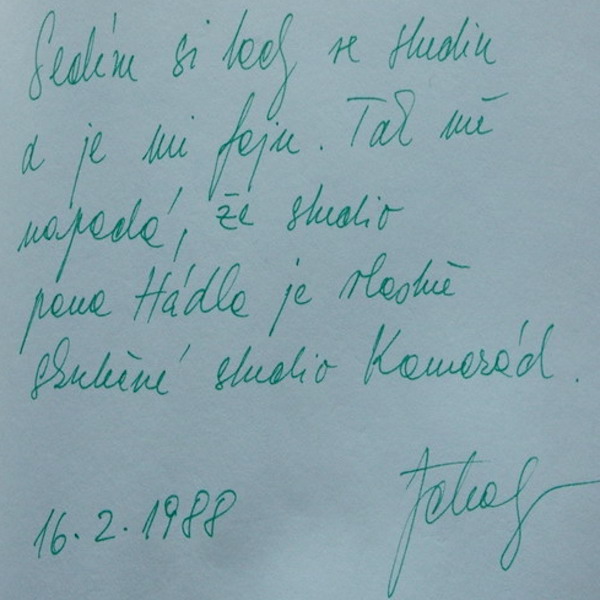 Sedím si tady ve studiu
a je mi fajn. Tak mě
napadá, že studio
pana Hádla je vlastně
skutečné studio Kamarád.
16.2.1988